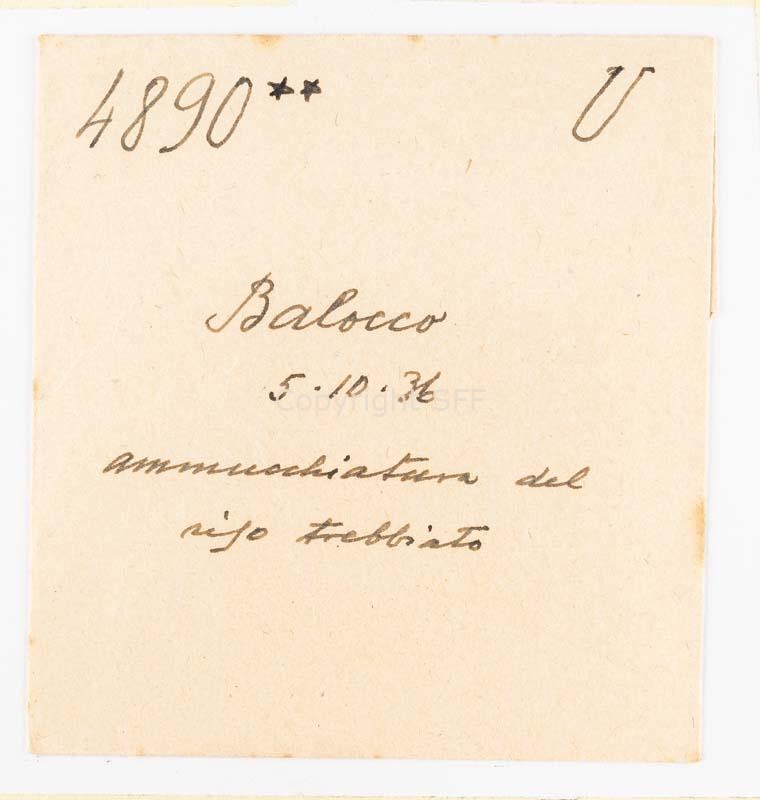 4890** U
Balocco
5.10.36
Copyright SFF
ammucchiatura del
riso trebbiato